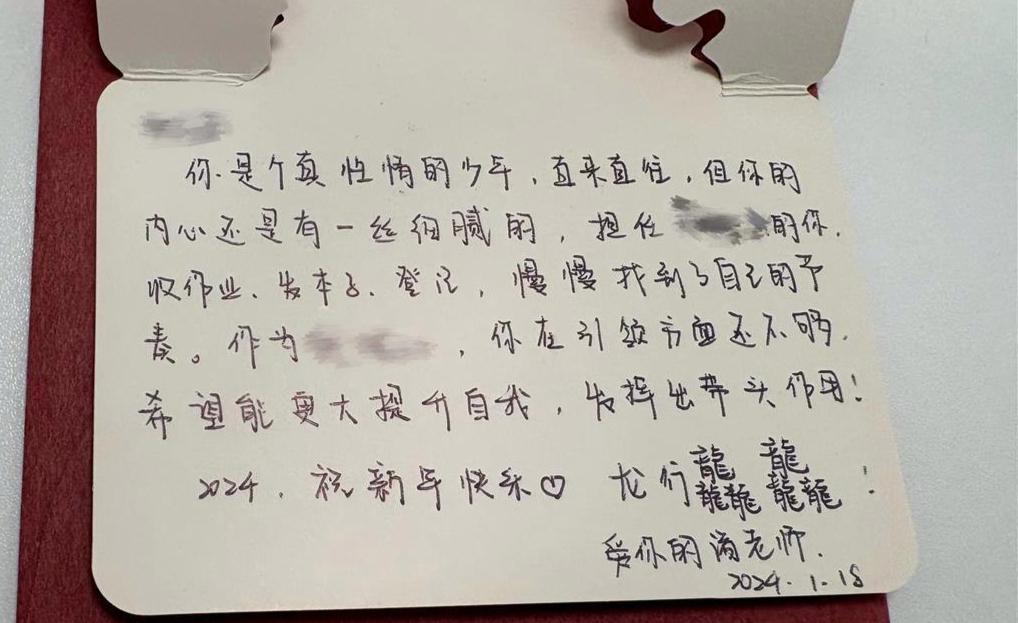 你是个真性情的少年，直来直往，但你的
内心还是有一丝细腻的，担任的你，
收作业、发本子、登记，慢慢找到了自己的节
奏。作为，你在引领方面还不够，
希望能更大提升自我，发挥出带头作用！
2024，祝新年快乐♡ 龙行龘龘！
爱你的老师.
2024.1.18